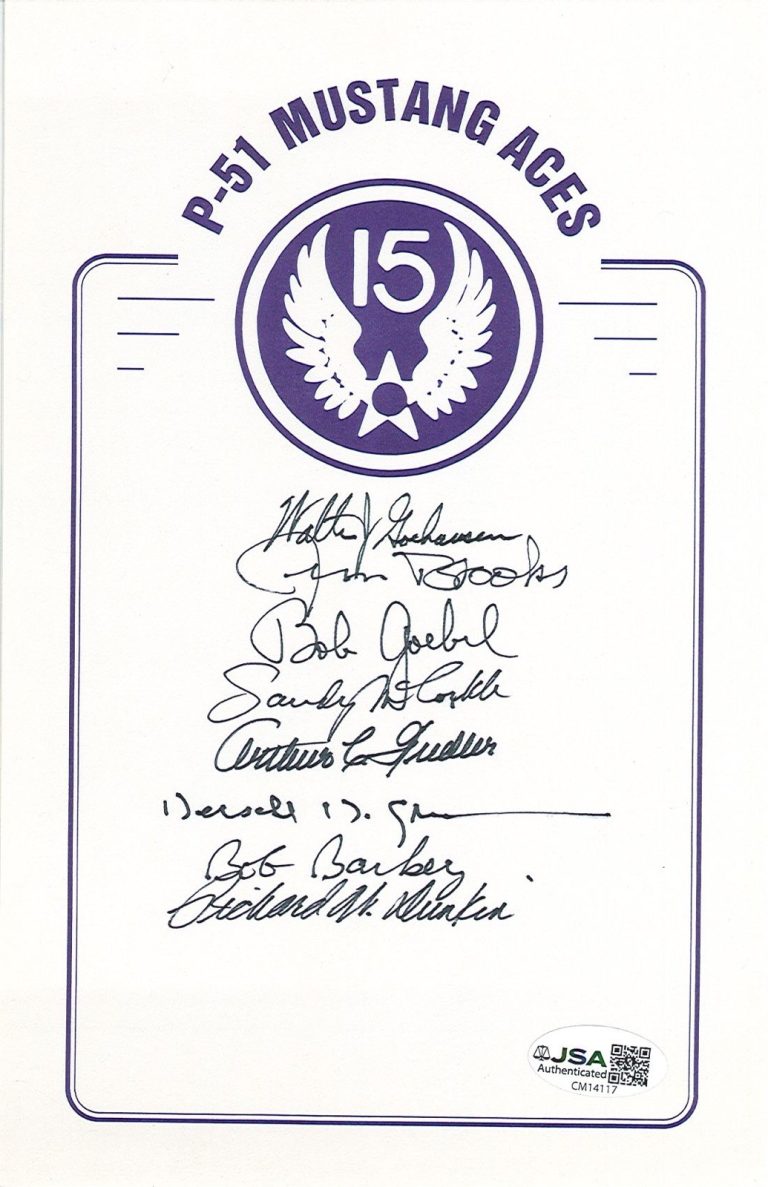 P-51 MUSTANG ACES
15
Walter J Goehausen
Jim Brooks
Bob Goebel
Sandy McCorkle
Arthur C Fiedler
Herschel H. Green
Bob Barkey
Richard W. Dunkin
JSA
Authenticated
CM14117